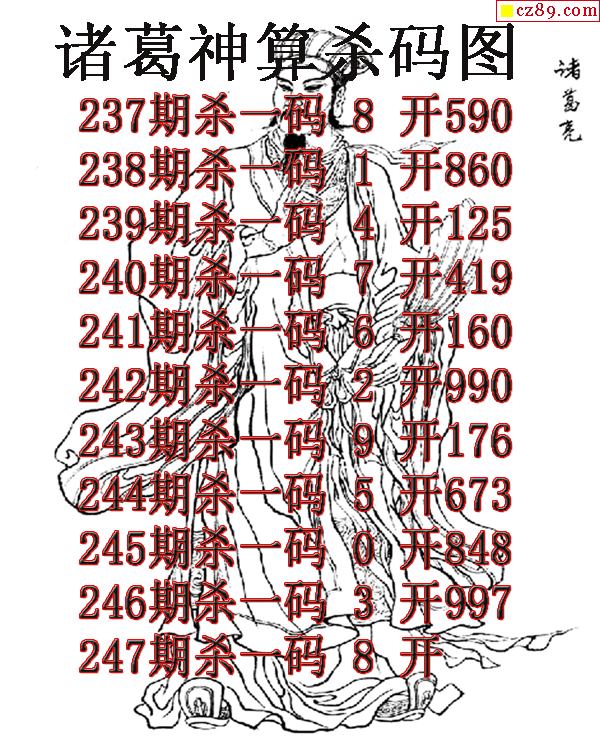 cz89.com
诸葛神算杀码图
诸葛亮
237期杀一码 8 开590
238期杀一码 1 开860
239期杀一码 4 开125
240期杀一码 7 开419
241期杀一码 6 开160
242期杀一码 2 开990
243期杀一码 9 开176
244期杀一码 5 开673
245期杀一码 0 开848
246期杀一码 3 开997
247期杀一码 8 开